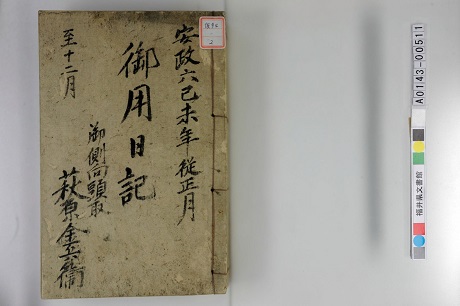 安政六己未年従正月
御用日記
至十二月
御側向頭取
萩原金兵衛
A0143-00511
福井県文書館